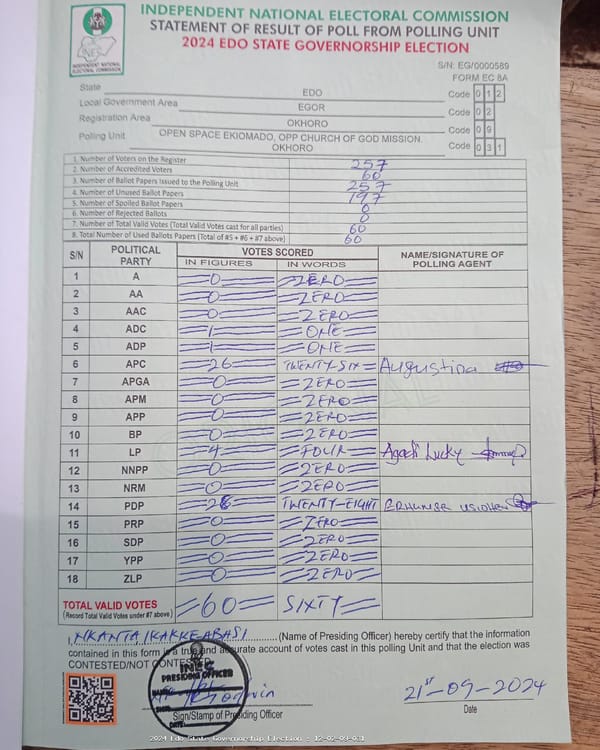 INDEPENDENT NATIONAL ELECTORAL COMMISSION
STATEMENT OF RESULT OF POLL FROM POLLING UNIT
2024 EDO STATE GOVERNORSHIP ELECTION
INEC
INDEPENDENT NATIONAL
ELECTORAL COMMISSION
S/N: EG/0000589
FORM EC 8A
State EDO Code 0 1 2
Local Government Area EGOR Code 0 2
Registration Area OKHORO Code 0 9
Polling Unit OPEN SPACE EKIOMADO, OPP CHURCH OF GOD MISSION. OKHORO Code 0 3 1
1. Number of Voters on the Register 257
2. Number of Accredited Voters 60
3. Number of Ballot Papers Issued to the Polling Unit 257
4. Number of Unused Ballot Papers 197
5. Number of Spoiled Ballot Papers 0
6. Number of Rejected Ballots 0
7. Number of Total Valid Votes (Total Valid Votes cast for all parties) 60
8. Total Number of Used Ballots Papers (Total of #5 + #6 + #7 above) 60
S/N POLITICAL PARTY VOTES SCORED NAME/SIGNATURE OF POLLING AGENT
IN FIGURES IN WORDS
1 A 0 ZERO
2 AA 0 ZERO
3 AAC 0 ZERO
4 ADC 1 ONE
5 ADP 1 ONE
6 APC 26 TWENTY-SIX Augustina
7 APGA 0 ZERO
8 APM 0 ZERO
9 APP 0 ZERO
10 BP 0 ZERO
11 LP 4 FOUR Agadi Lucky
12 NNPP 0 ZERO
13 NRM 0 ZERO
14 PDP 28 TWENTY-EIGHT
15 PRP 0 ZERO
16 SDP 0 ZERO
17 YPP 0 ZERO
18 ZLP 0 ZERO
TOTAL VALID VOTES =60= SIXTY
(Record Total Valid Votes under #7 above)
I, NKANTA, IKAKKEABASI (Name of Presiding Officer) hereby certify that the information
contained in this form is a true and accurate account of votes cast in this polling Unit and that the election was
CONTESTED/NOT CONTESTED.
INEC
PRESIDING OFFICER
NAME:
DATE:
Sign/Stamp of Presiding Officer
21st-09-2024
Date
2024 Edo State Governorship Election : 12-02-09-031